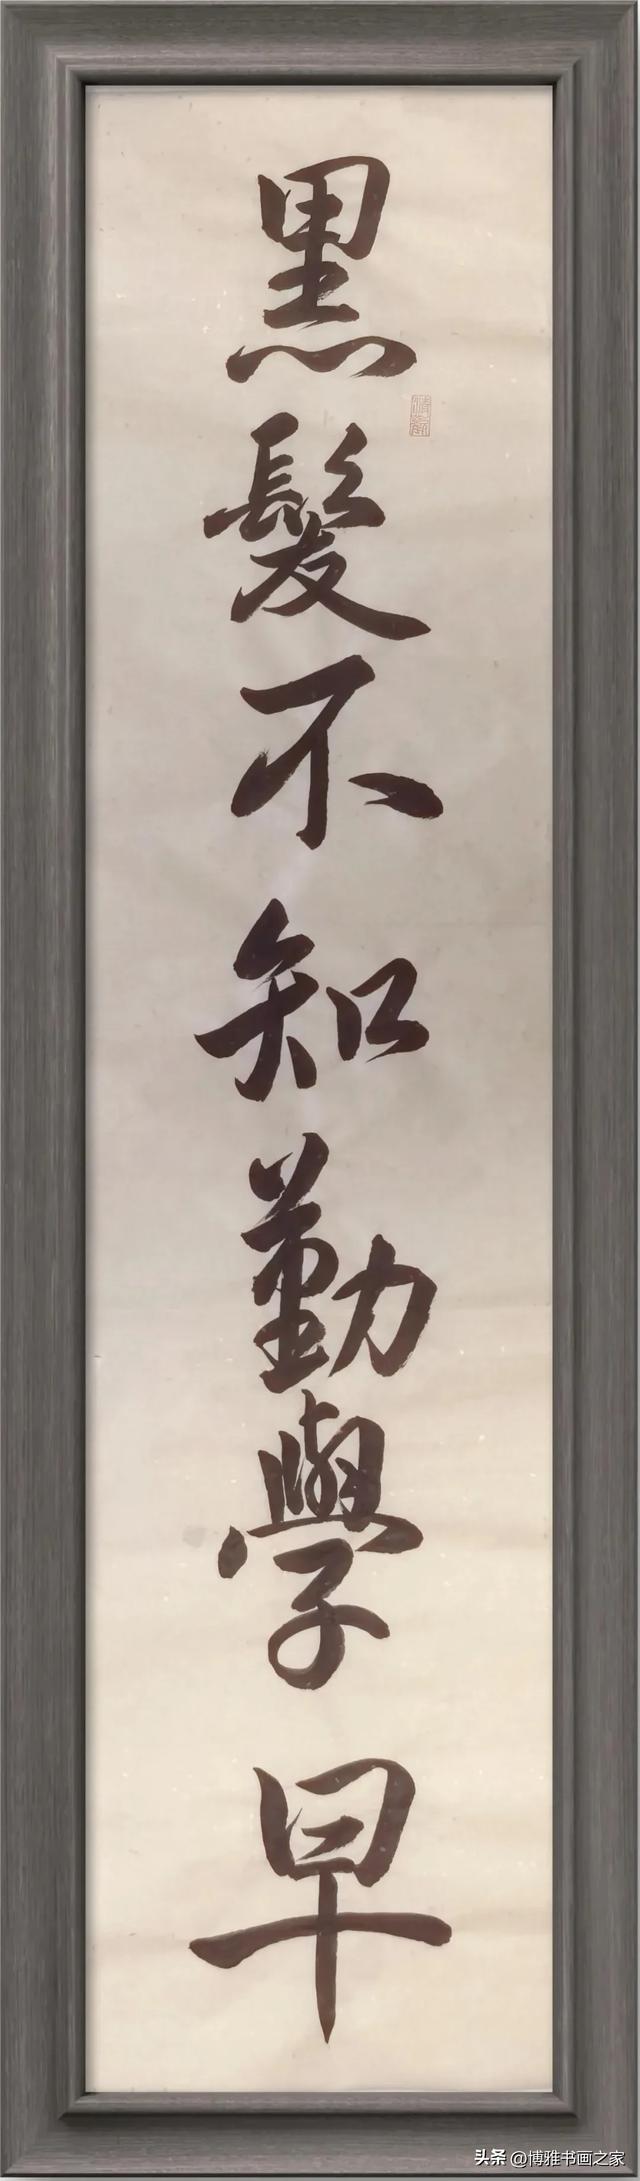 黑髮不知勤學早
头条 @博雅书画之家